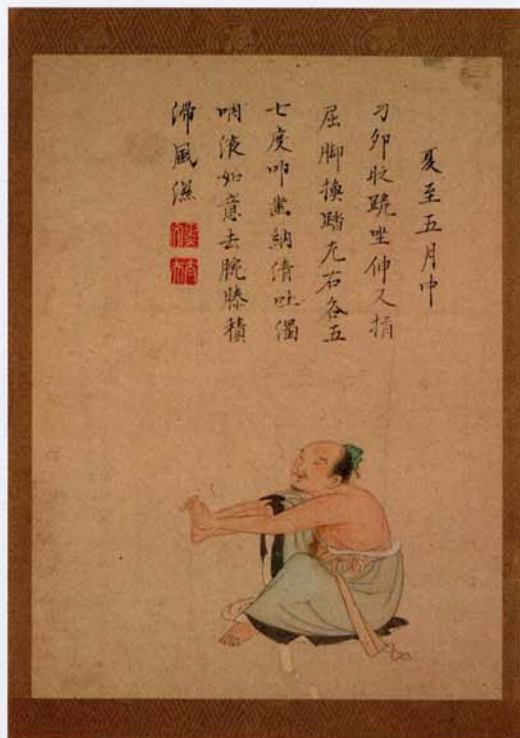 夏至五月中
卯时跪坐伸叉指
屈脚換踏左右各五
七度叩齒納清吐濁
咽液如意去腕膝積
滯風